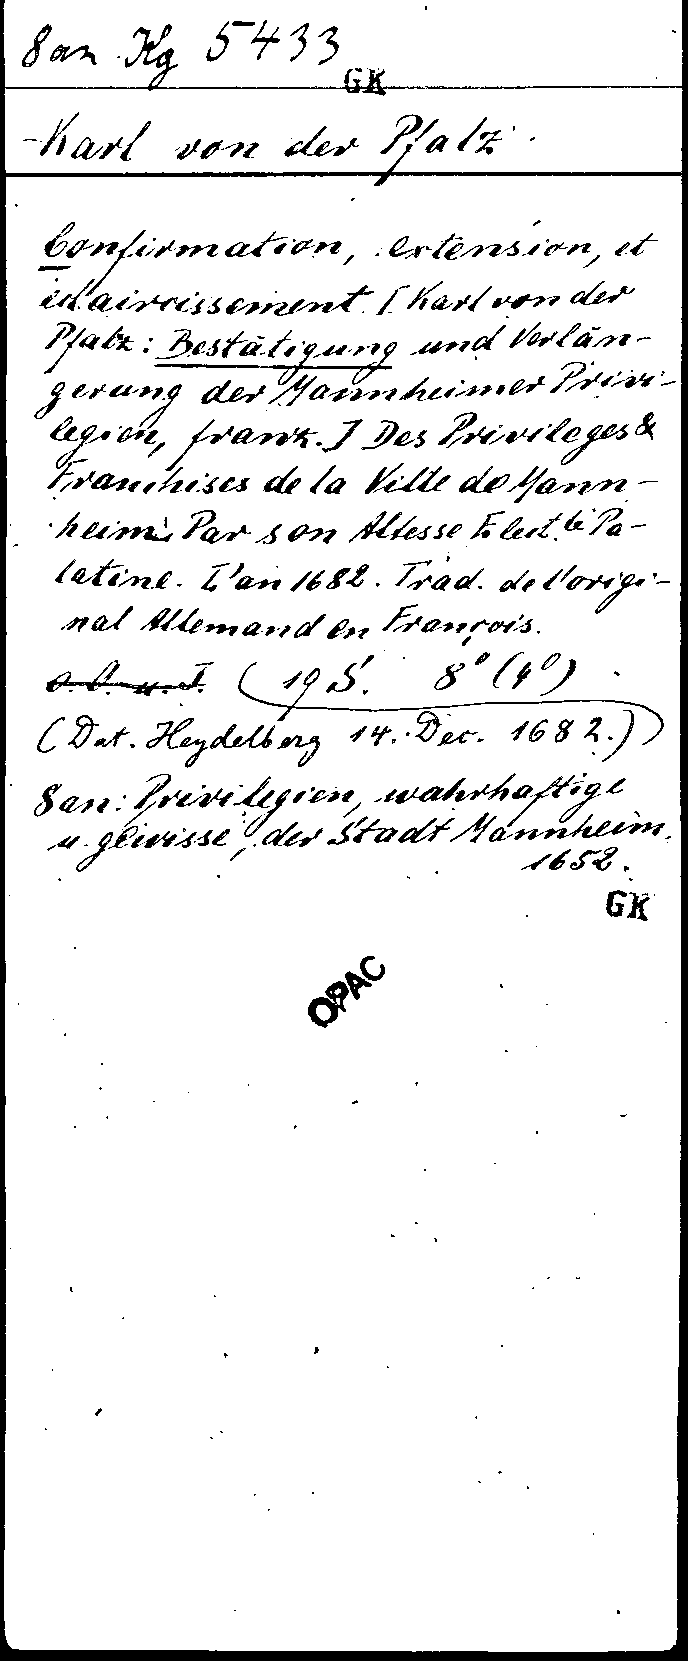 8an Kg 5433
GK
Karl von der Pfalz.
Confirmation, extension, et
éclaircissement. [Karl von der
Pfalz: Bestätigung und Verlän-
gerung der Mannheimer Privi-
legien, franz.] Des Privileges &
Franchises de la Ville de Mann-
heim: Par son Altesse Elect.le Pa-
latine. L'an 1682. Trad. de l'origi-
nal Allemand en François.
o.O. u. J. (19 S. 8° (4°)
(Dat. Heydelberg 14. Dec. 1682.))
8an: Privilegien, wahrhaftige
u. gewisse, der Stadt Mannheim.
1652.
GK
OPAC